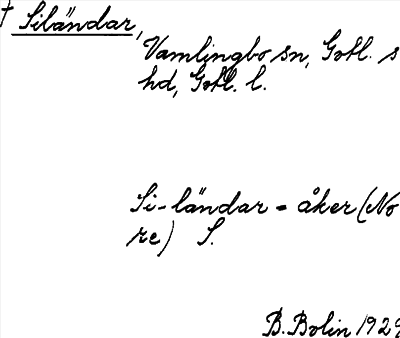 † Siländar,
Vamlingbo sn, Gotl. s
hd, Gotl. l.
Si-ländar = åker (No
re) S.
B. Bolin 1929